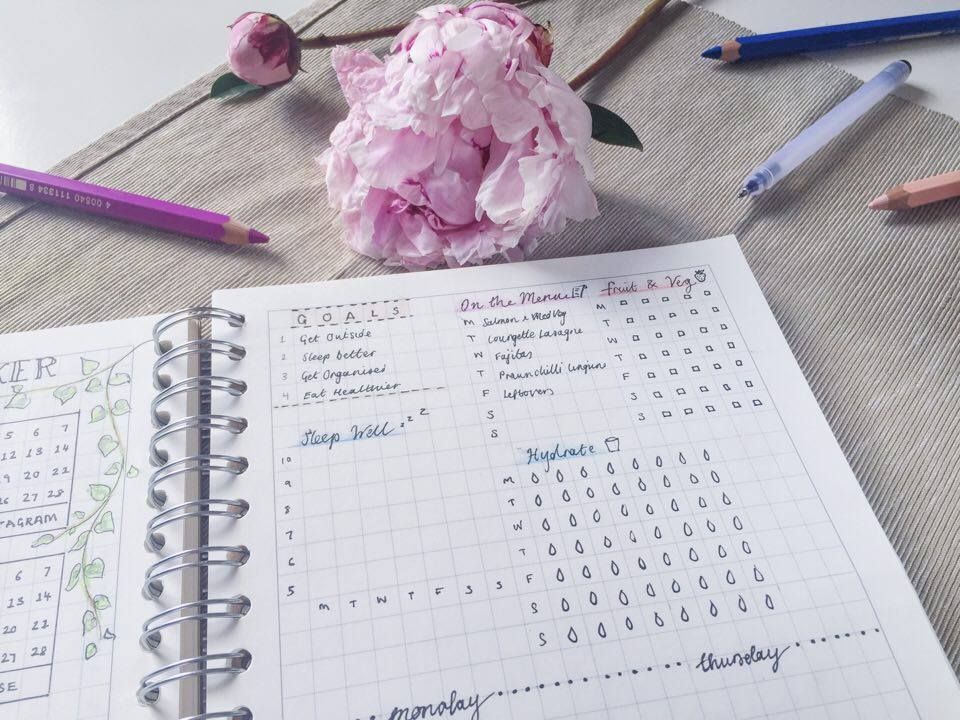 4 00540 111334 8
KER
5 6 7
12 13 14
19 20 21
26 27 28
TAGRAM
6 7
13 14
20 21
27 28
SE
GOALS
1 Get Outside
2 Sleep better
3 Get Organised
4 Eat Healthier
On the Menu
M Salmon & Med Veg
T Courgette Lasagne
W Fajitas
T Prawn chilli linguine
F Leftovers
S
S
fruit & Veg
M
T
W
T
F
S
S
Sleep Well zzz
10
9
8
7
6
5
M T W T F S S
Hydrate
M
T
W
T
F
S
S
monday
thursday